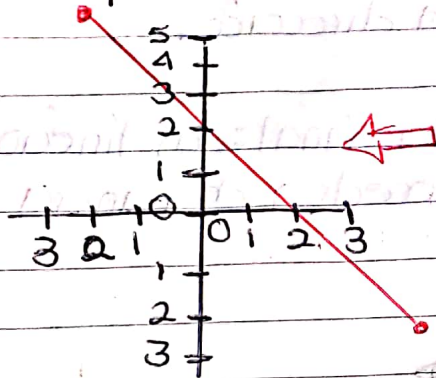 5
4
3
2
1
0
3 2 1 0 1 2 3
1
2
3